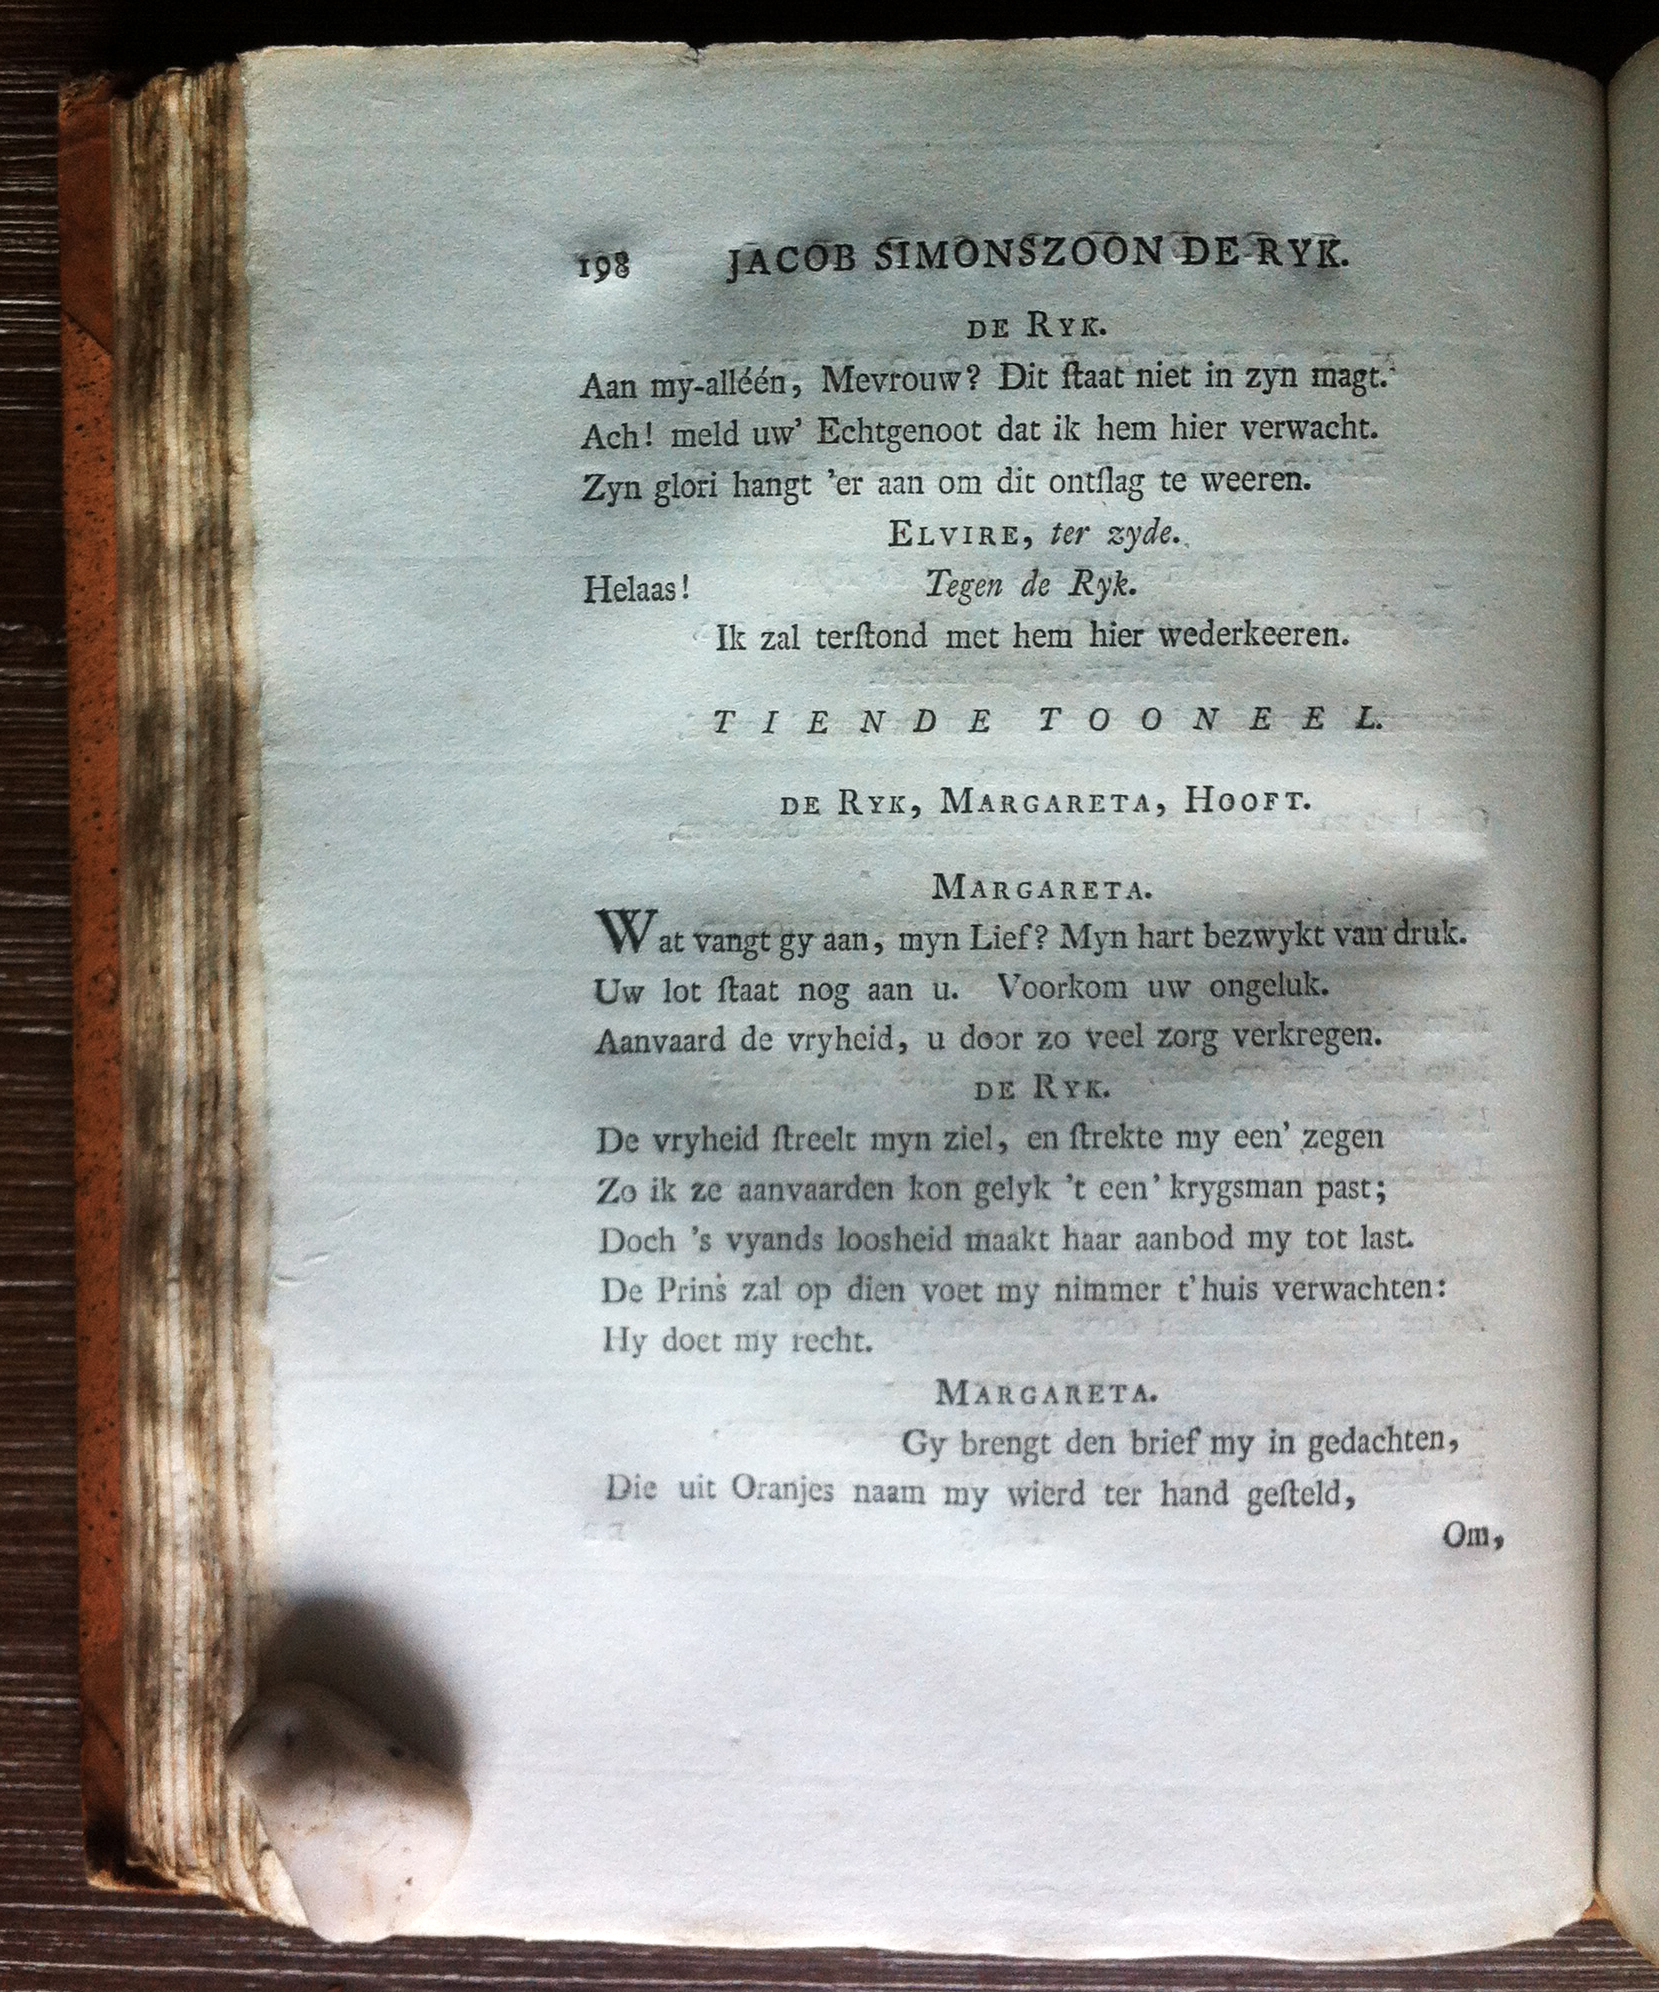 198 JACOB SIMONSZOON DE RYK.
DE RYK.
Aan my-alléén, Mevrouw? Dit ſtaat niet in zyn magt.
Ach! meld uw' Echtgenoot dat ik hem hier verwacht.
Zyn glori hangt 'er aan om dit ontſlag te weeren.
ELVIRE, ter zyde.
Helaas! Tegen de Ryk.
Ik zal terſtond met hem hier wederkeeren.
TIENDE TOONEEL.
DE RYK, MARGARETA, HOOFT.
MARGARETA.
Wat vangt gy aan, myn Lief? Myn hart bezwykt van druk.
Uw lot ſtaat nog aan u. Voorkom uw ongeluk.
Aanvaard de vryheid, u door zo veel zorg verkregen.
DE RYK.
De vryheid ſtreelt myn ziel, en ſtrekte my een' zegen
Zo ik ze aanvaarden kon gelyk 't een' krygsman past;
Doch 's vyands loosheid maakt haar aanbod my tot last.
De Prins zal op dien voet my nimmer t'huis verwachten:
Hy doet my recht.
MARGARETA.
Gy brengt den brief my in gedachten,
Die uit Oranjes naam my wierd ter hand geſteld,
Om,